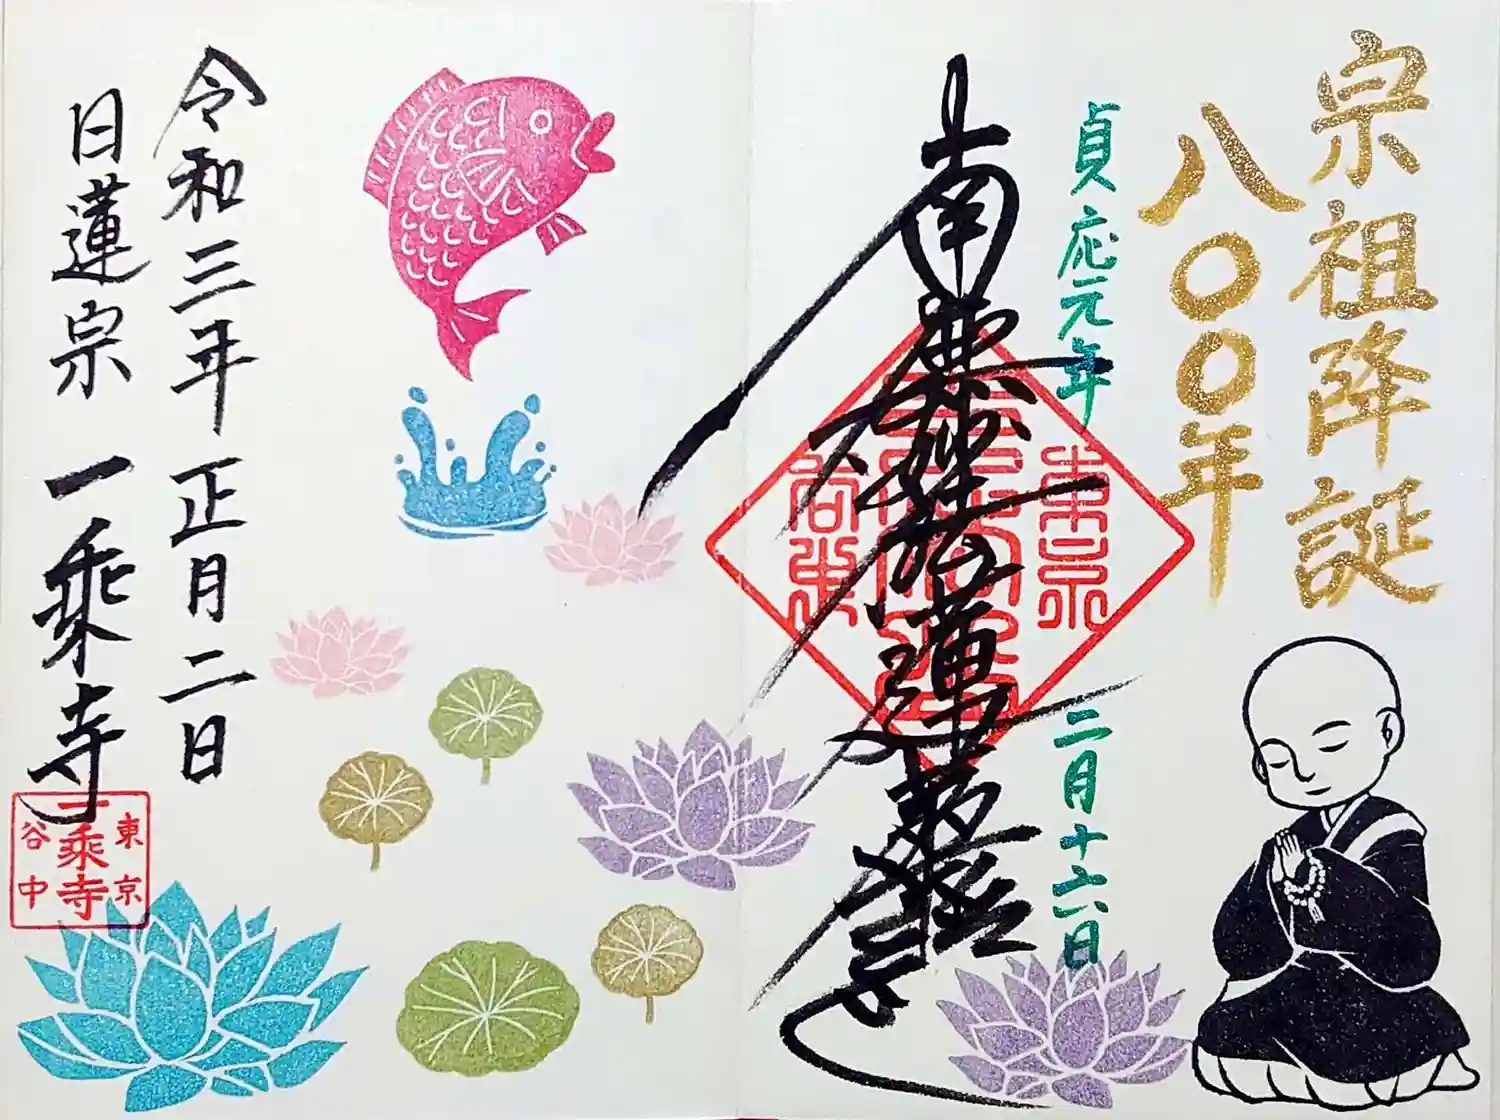 宗祖降誕
八〇〇年
貞応元年 二月十六日
南無妙法蓮華経
令和三年 正月二日
日蓮宗 一乗寺
東京
一乗寺
谷中